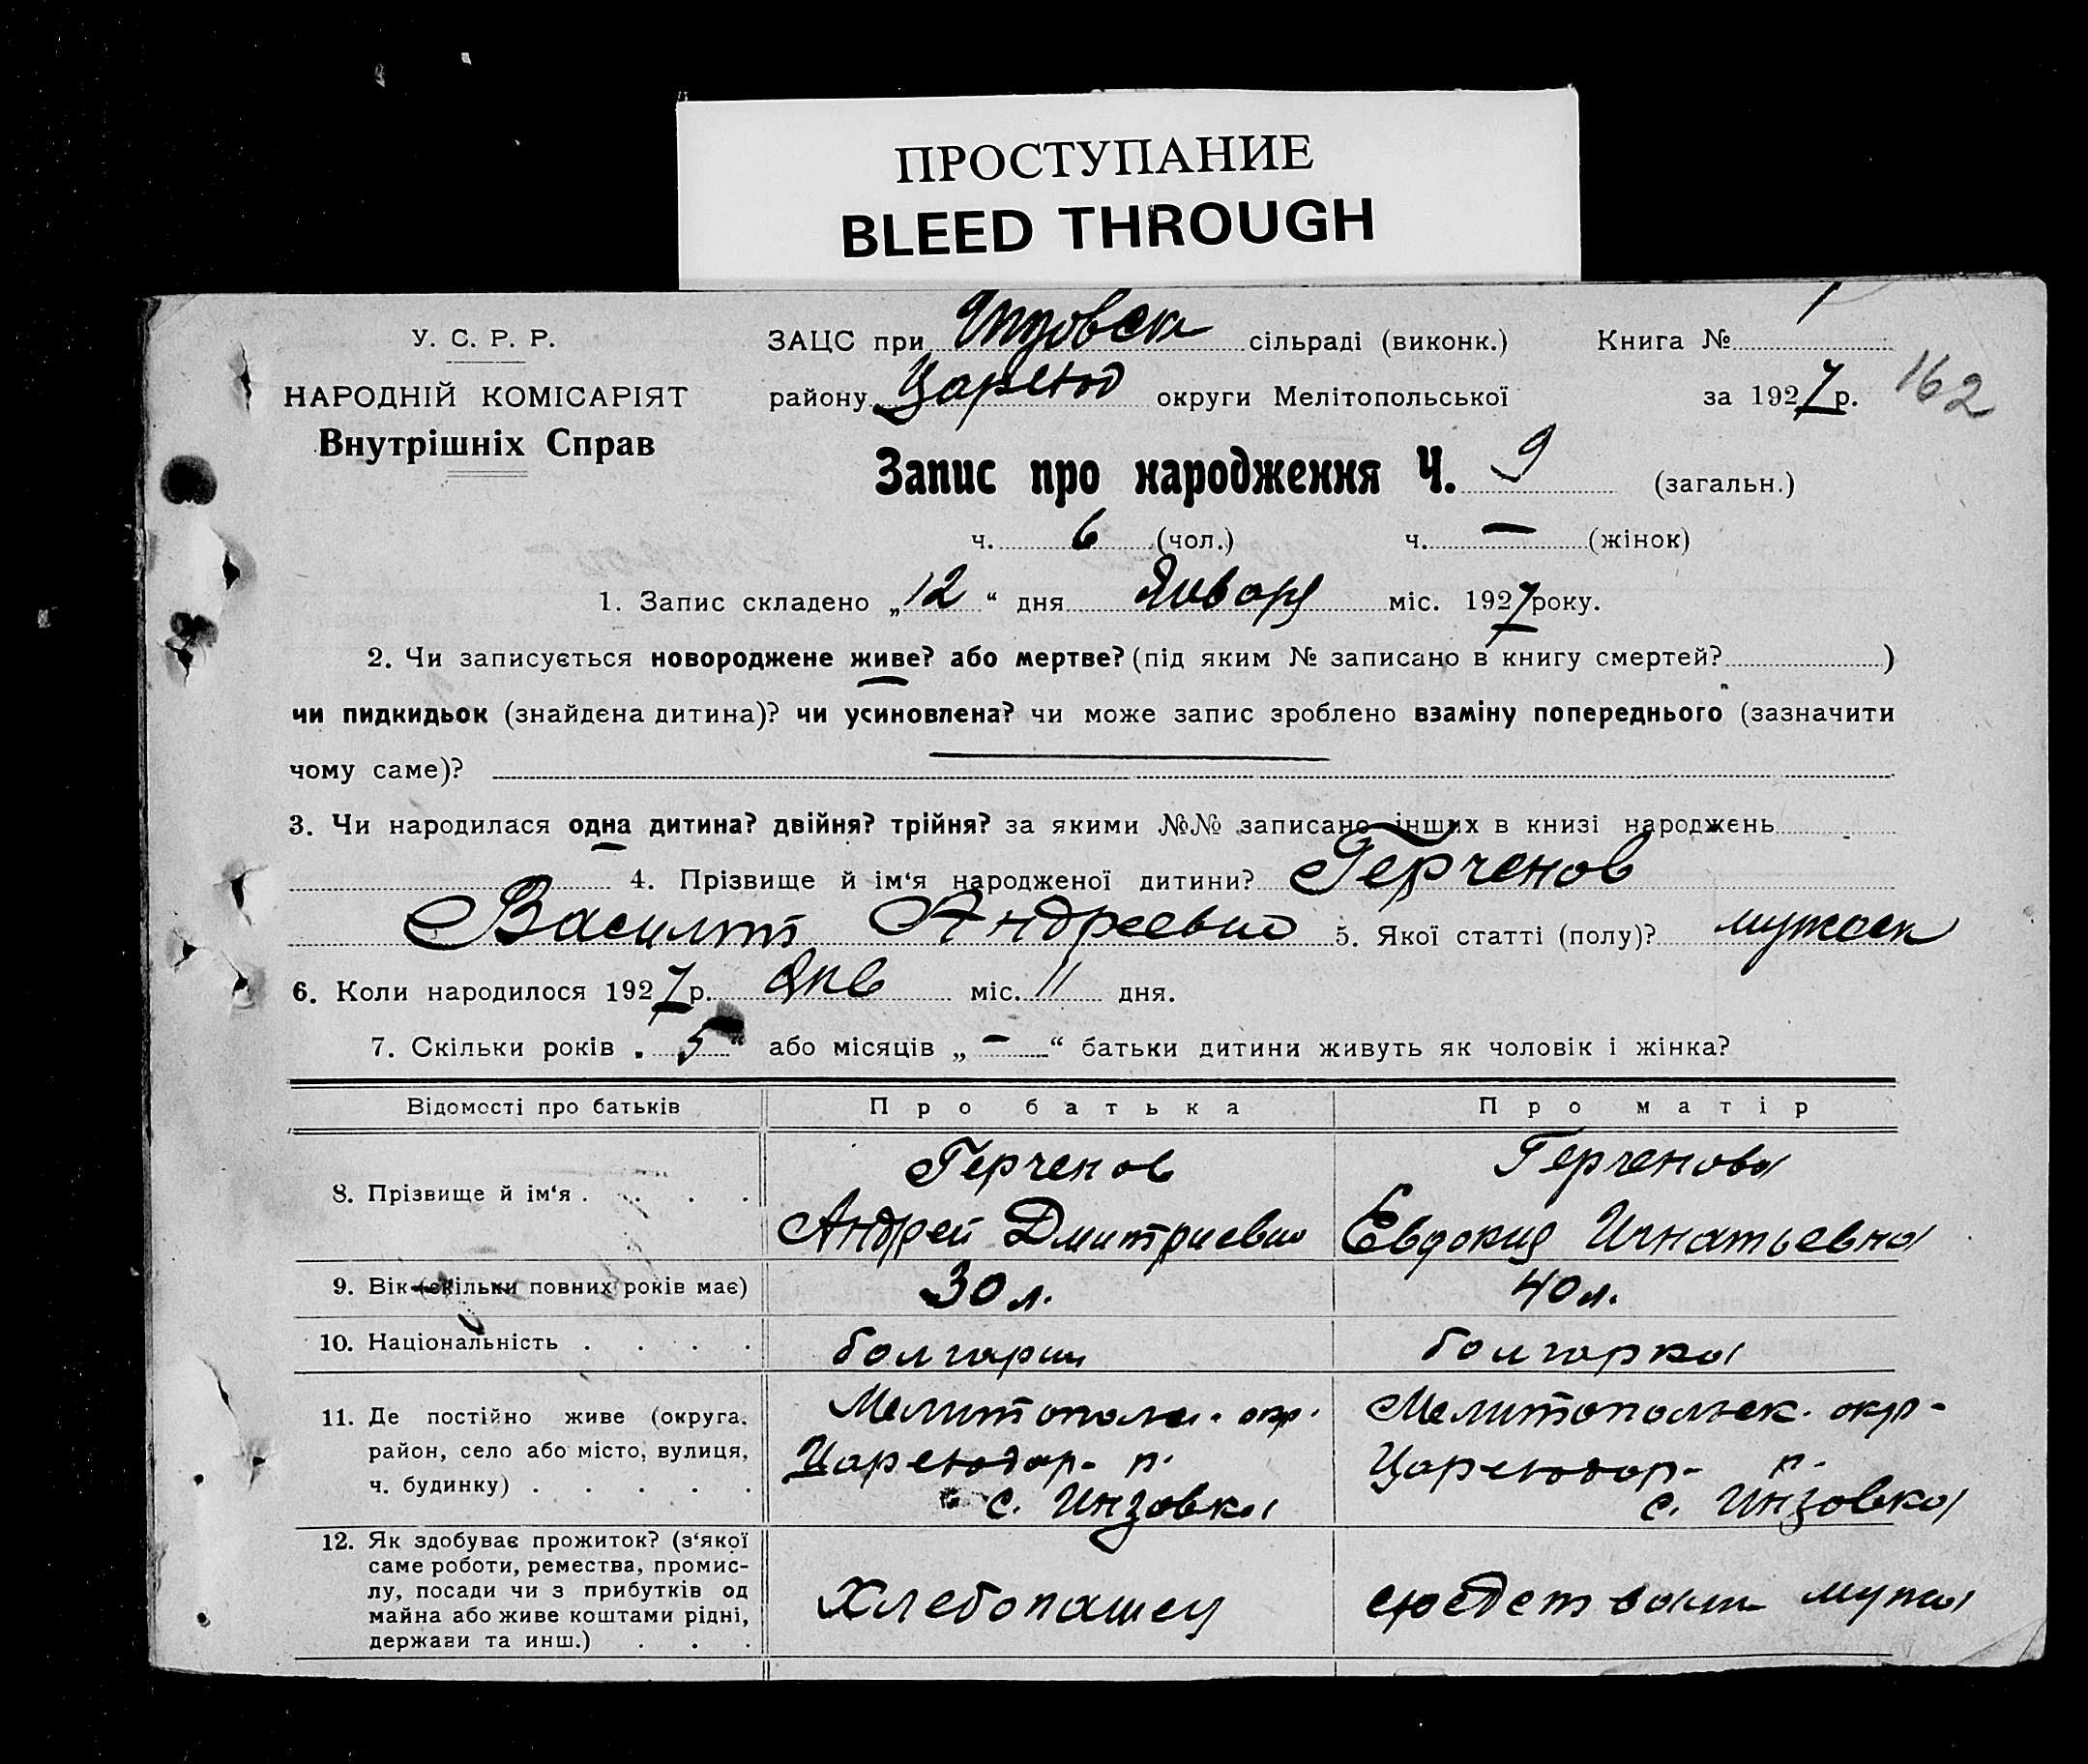 ПРОСТУПАНИЕ
BLEED THROUGH
У. С. Р. Р.
НАРОДНІЙ КОМІСАРІЯТ
Внутрішніх Справ
ЗАЦС при Инзовск сільраді (виконк.) Книга № 1
району Царевод округи Мелітопольської за 1927 р. 162
Запис про народження Ч. 9 (загальн.)
ч. 6 (чол.) ч. — (жінок)
1. Запис складено „12“ дня Января міс. 1927 року.
2. Чи записується новороджене живе? або мертве? (під яким № записано в книгу смертей? )
чи пидкидьок (знайдена дитина)? чи усиновлена? чи може запис зроблено взаміну попереднього (зазначити
чому саме)?
3. Чи народилася одна дитина? двійня? трійня? за якими №№ записано інших в книзі народжень
4. Прізвище й ім‘я народженої дитини? Герченов
Василий Андреевич 5. Якої статті (полу)? мужеск
6. Коли народилося 1927 р. Янв міс. 11 дня.
7. Скільки років „5“ або місяців „—“ батьки дитини живуть як чоловік і жінка?
Відомості про батьків Про батька Про матір
8. Прізвище й ім‘я . . . . Герченов Герченова
Андрей Дмитриевич Евдокия Игнатьевна
9. Вік (скільки повних років має) 30 л. 40 л.
10. Національність . . . . болгарин болгарка
11. Де постійно живе (округа, район, село або місто, вулиця, ч. будинку) . . . . .
Мелитопольс. окр. Мелитопольск. окр-
Царев р. Царев р.
с. Инзовка с. Инзовка
12. Як здобуває прожиток? (з‘якої
саме роботи, ремества, промис-
лу, посади чи з прибутків од
майна або живе коштами рідні,
держави та инш.) . . .
Хлебопашец средствами мужа